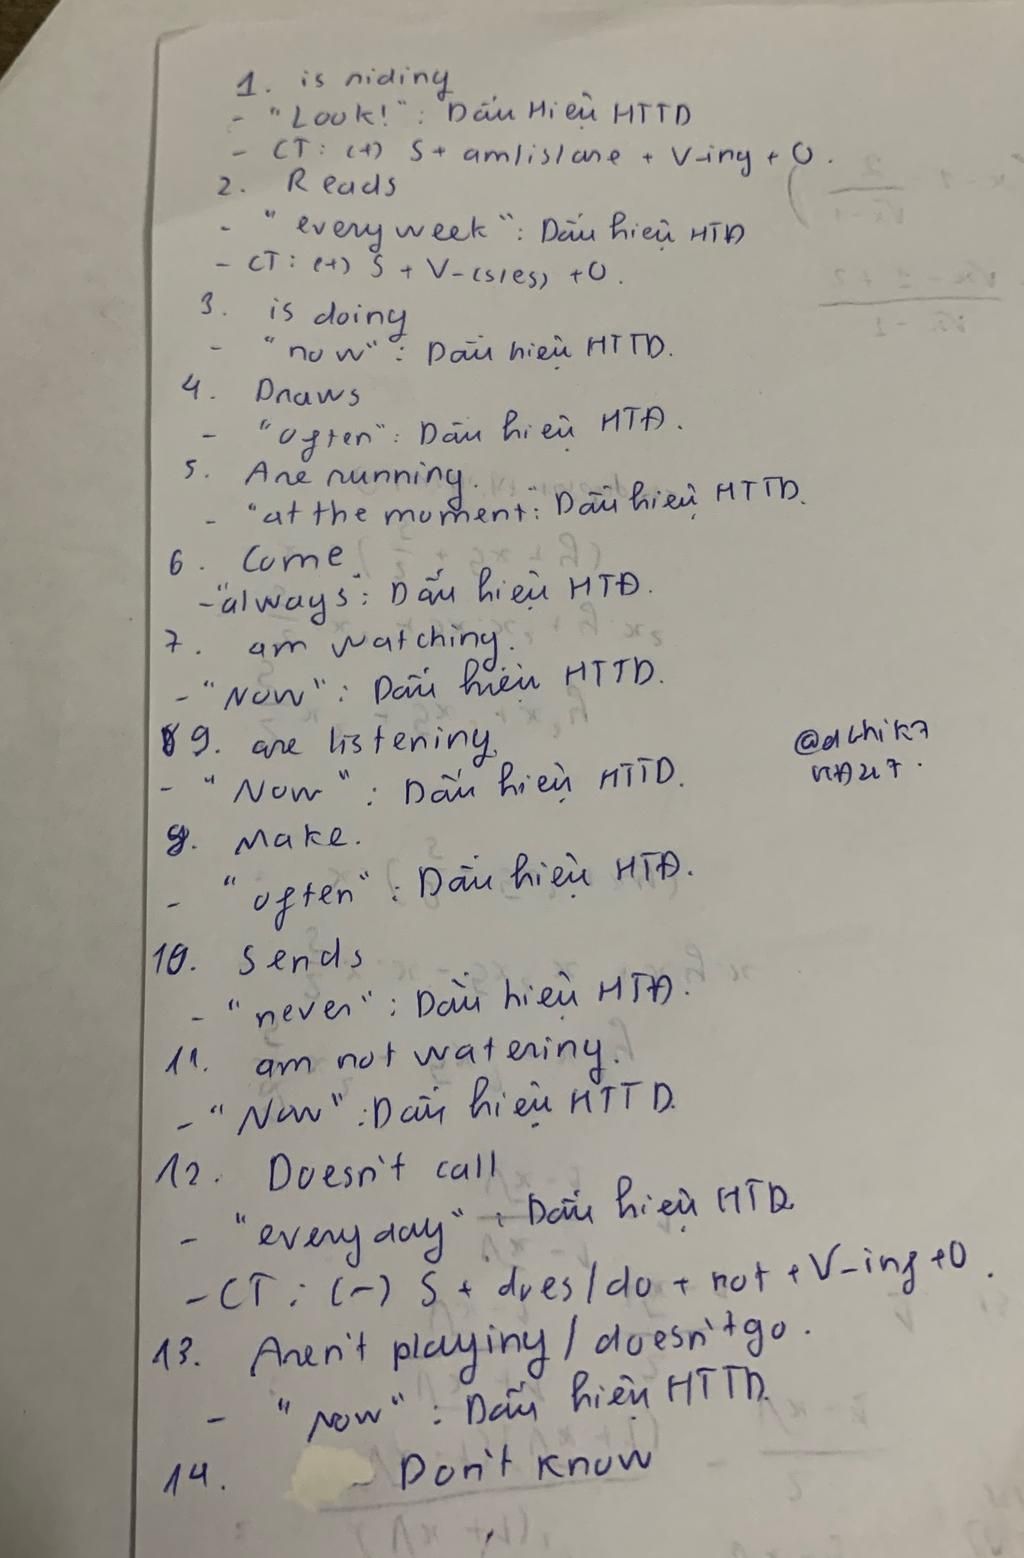 1. is riding
- "Look!": Dấu Hiệu HTTD
- CT: (+) S + am/is/are + V-ing + O.
2. Reads
- "every week": Dấu hiệu HTĐ
- CT: (+) S + V-(s/es) + O.
3. is doing
- "now": Dấu hiệu HTTD.
4. Draws
- "often": Dấu hiệu HTĐ.
5. Are running.
- "at the moment: Dấu hiệu HTTD.
6. Come
- "always": Dấu hiệu HTĐ.
7. am watching.
- "Now": Dấu hiệu HTTD.
9. are listening.
- "Now": Dấu hiệu HTTD.
@dchik7
8. Make.
- "often": Dấu hiệu HTĐ.
10. Sends
- "never": Dấu hiệu HTĐ.
11. am not watering.
- "Now": Dấu hiệu HTTD.
12. Doesn't call
- "every day": Dấu hiệu HTĐ
- CT: (-) S + does/do + not + V-ing + O.
13. Aren't playing / doesn't go.
- "now": Dấu hiệu HTTD.
14. Don't know